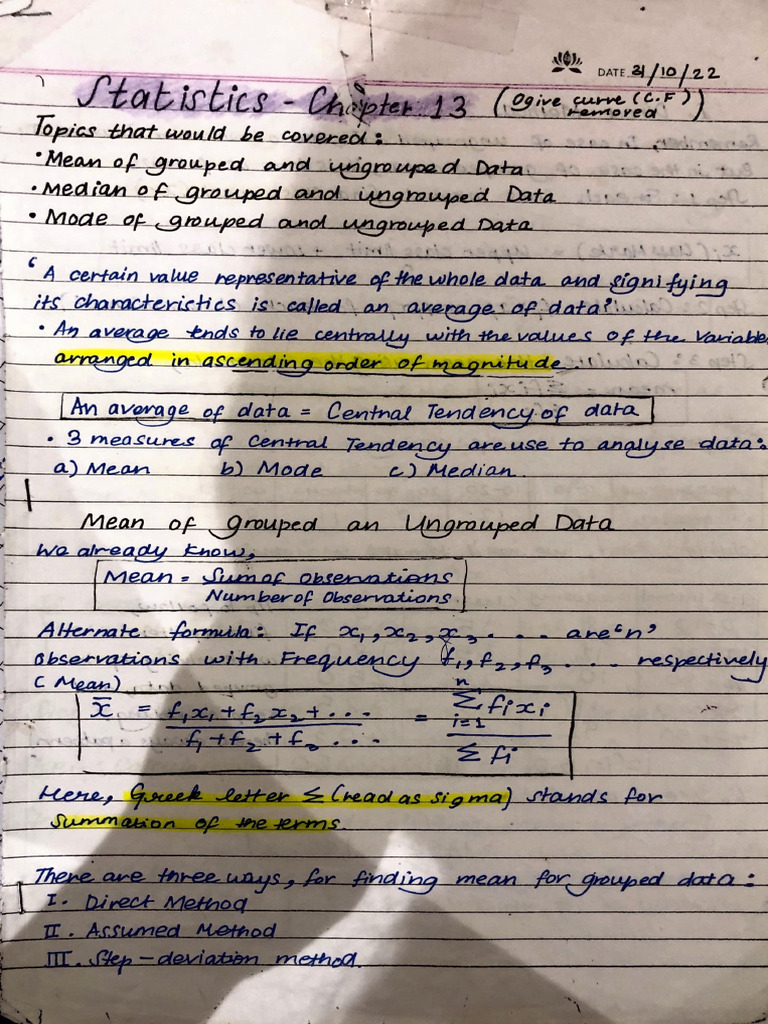 DATE 31/10/22
Statistics - Chapter 13 (Ogive curve (C.F) removed)
Topics that would be covered:
• Mean of grouped and ungrouped Data
• Median of grouped and ungrouped Data
• Mode of grouped and ungrouped Data
‘A certain value representative of the whole data and signifying
its characteristics is called an average of data’
• An average tends to lie centrally with the values of the variable
arranged in ascending order of magnitude.
An average of data = Central Tendency of data
• 3 measures of Central Tendency are use to analyse data:
a) Mean b) Mode c) Median
Mean of grouped an Ungrouped Data
We already know,
Mean = Sum of observations
Number of Observations
Alternate formula: If x₁, x₂, x₃ .... are ‘n’
observations with Frequency f₁, f₂, f₃ .... respectively
(Mean)
x̄ = f₁x₁ + f₂x₂ + ... / f₁ + f₂ + f₃ ... = Σⁿᵢ₌₁ fᵢxᵢ / Σfᵢ
Here, Greek letter Σ (read as sigma) stands for
summation of the terms.
There are three ways, for finding mean for grouped data:
I. Direct Method
II. Assumed Method
III. Step-deviation method.